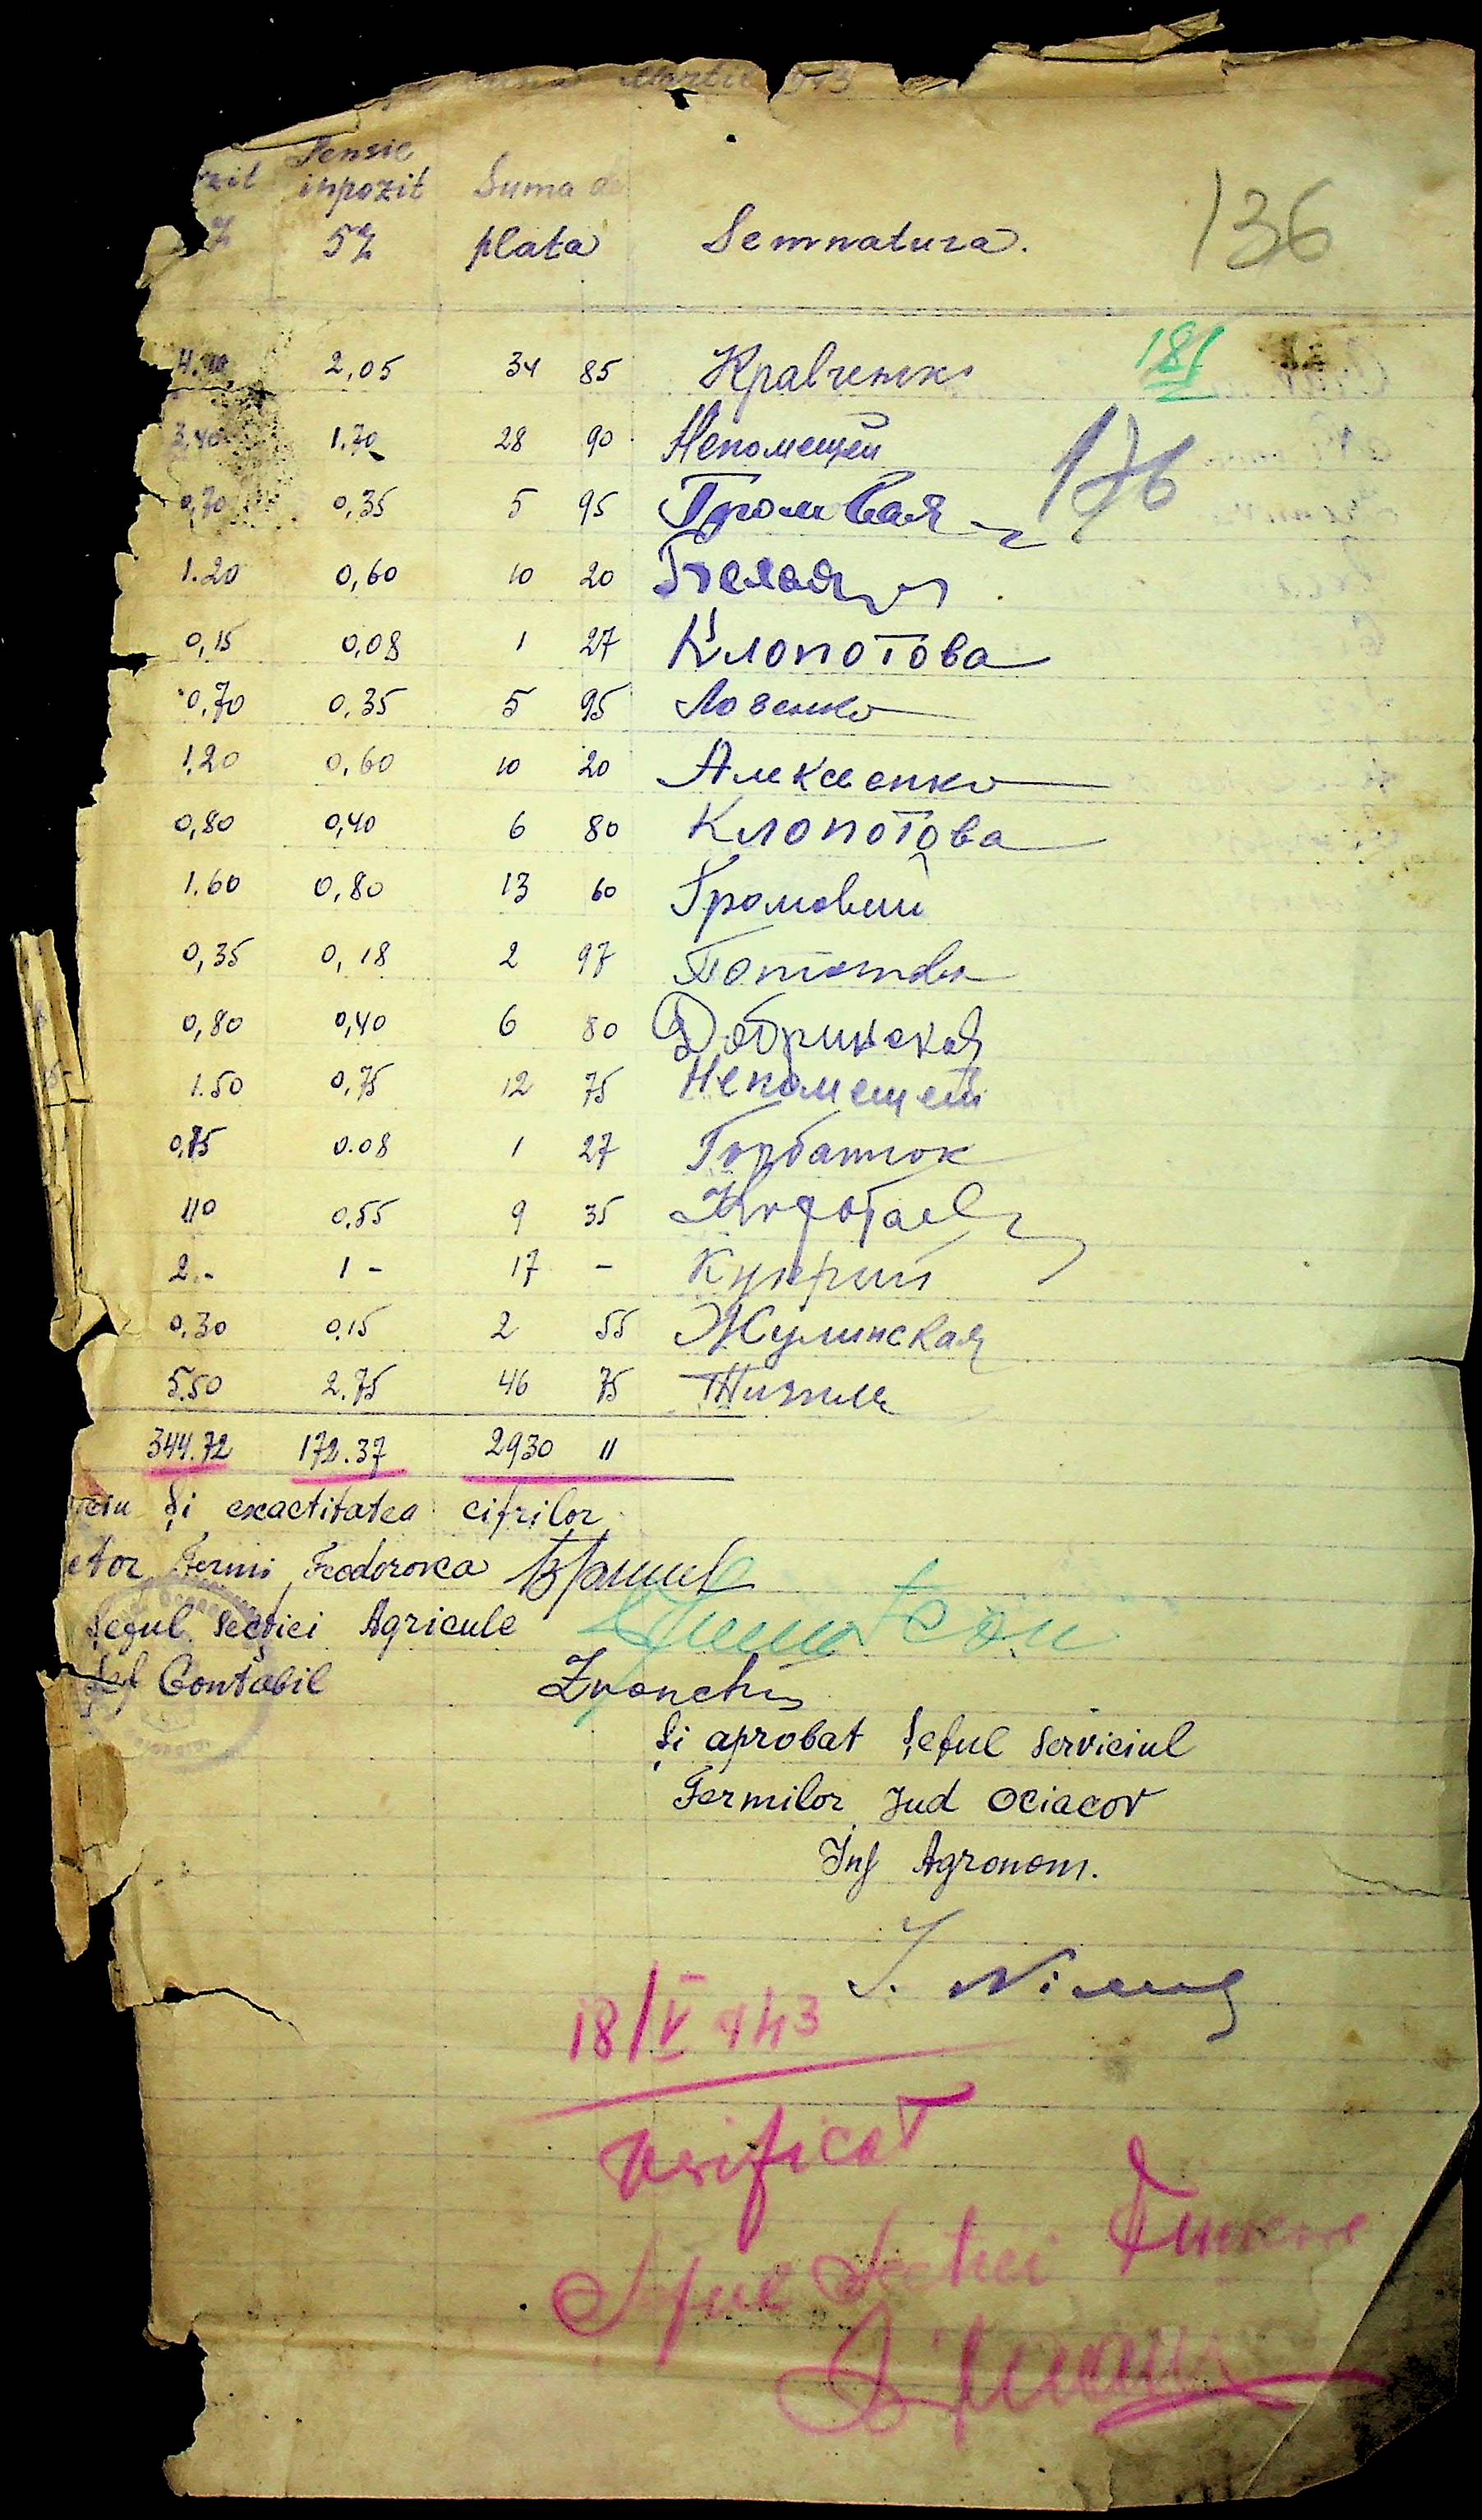 Martie 943
Pensie
zit inpozit Suma de
% 5% plata Semnatura. 136
181
2,05 34 85 Кравченко
3,40 1.70 28 90 Непомещей
176
0,70 0,35 5 95 Громовая
1.20 0,60 10 20 Белая
0,15 0,08 1 27 Клопотова
0,70 0,35 5 95 Лозенко
1,20 0,60 10 20 Алексеенко
0,80 0,40 6 80 Клопотова
1.60 0,80 13 60 Громовий
0,35 0,18 2 97
0,80 0,40 6 80 Добринская
1.50 0,75 12 75 Непомещей
0,15 0.08 1 27 Горбатюк
110 0.55 9 35
2.- 1 - 17 - Куприй
0.30 0.15 2 55 Жулинская
5.50 2.75 46 75
344.72 172.37 2930 11
și exactitatea cifrilor
ctor Fermi Feodorovca
Șeful Secției Agricule
Șef Contabil
Și aprobat Șeful Serviciul
Fermilor Jud Ociacov
Ing Agronom.
18/V 943
Verificat
Șeful Sectiei